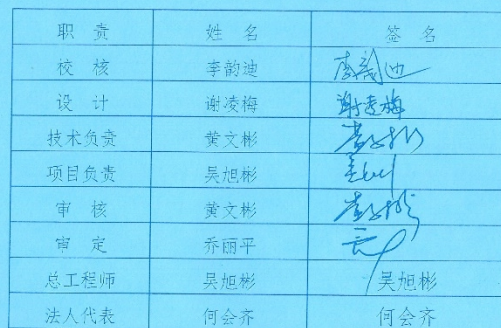 职 责 姓 名 签 名
校 核 李韵迪 李韵迪
设 计 谢凌梅 谢凌梅
技术负责 黄文彬
项目负责 吴旭彬
审 核 黄文彬
审 定 乔丽平
总工程师 吴旭彬 吴旭彬
法人代表 何会齐 何会齐